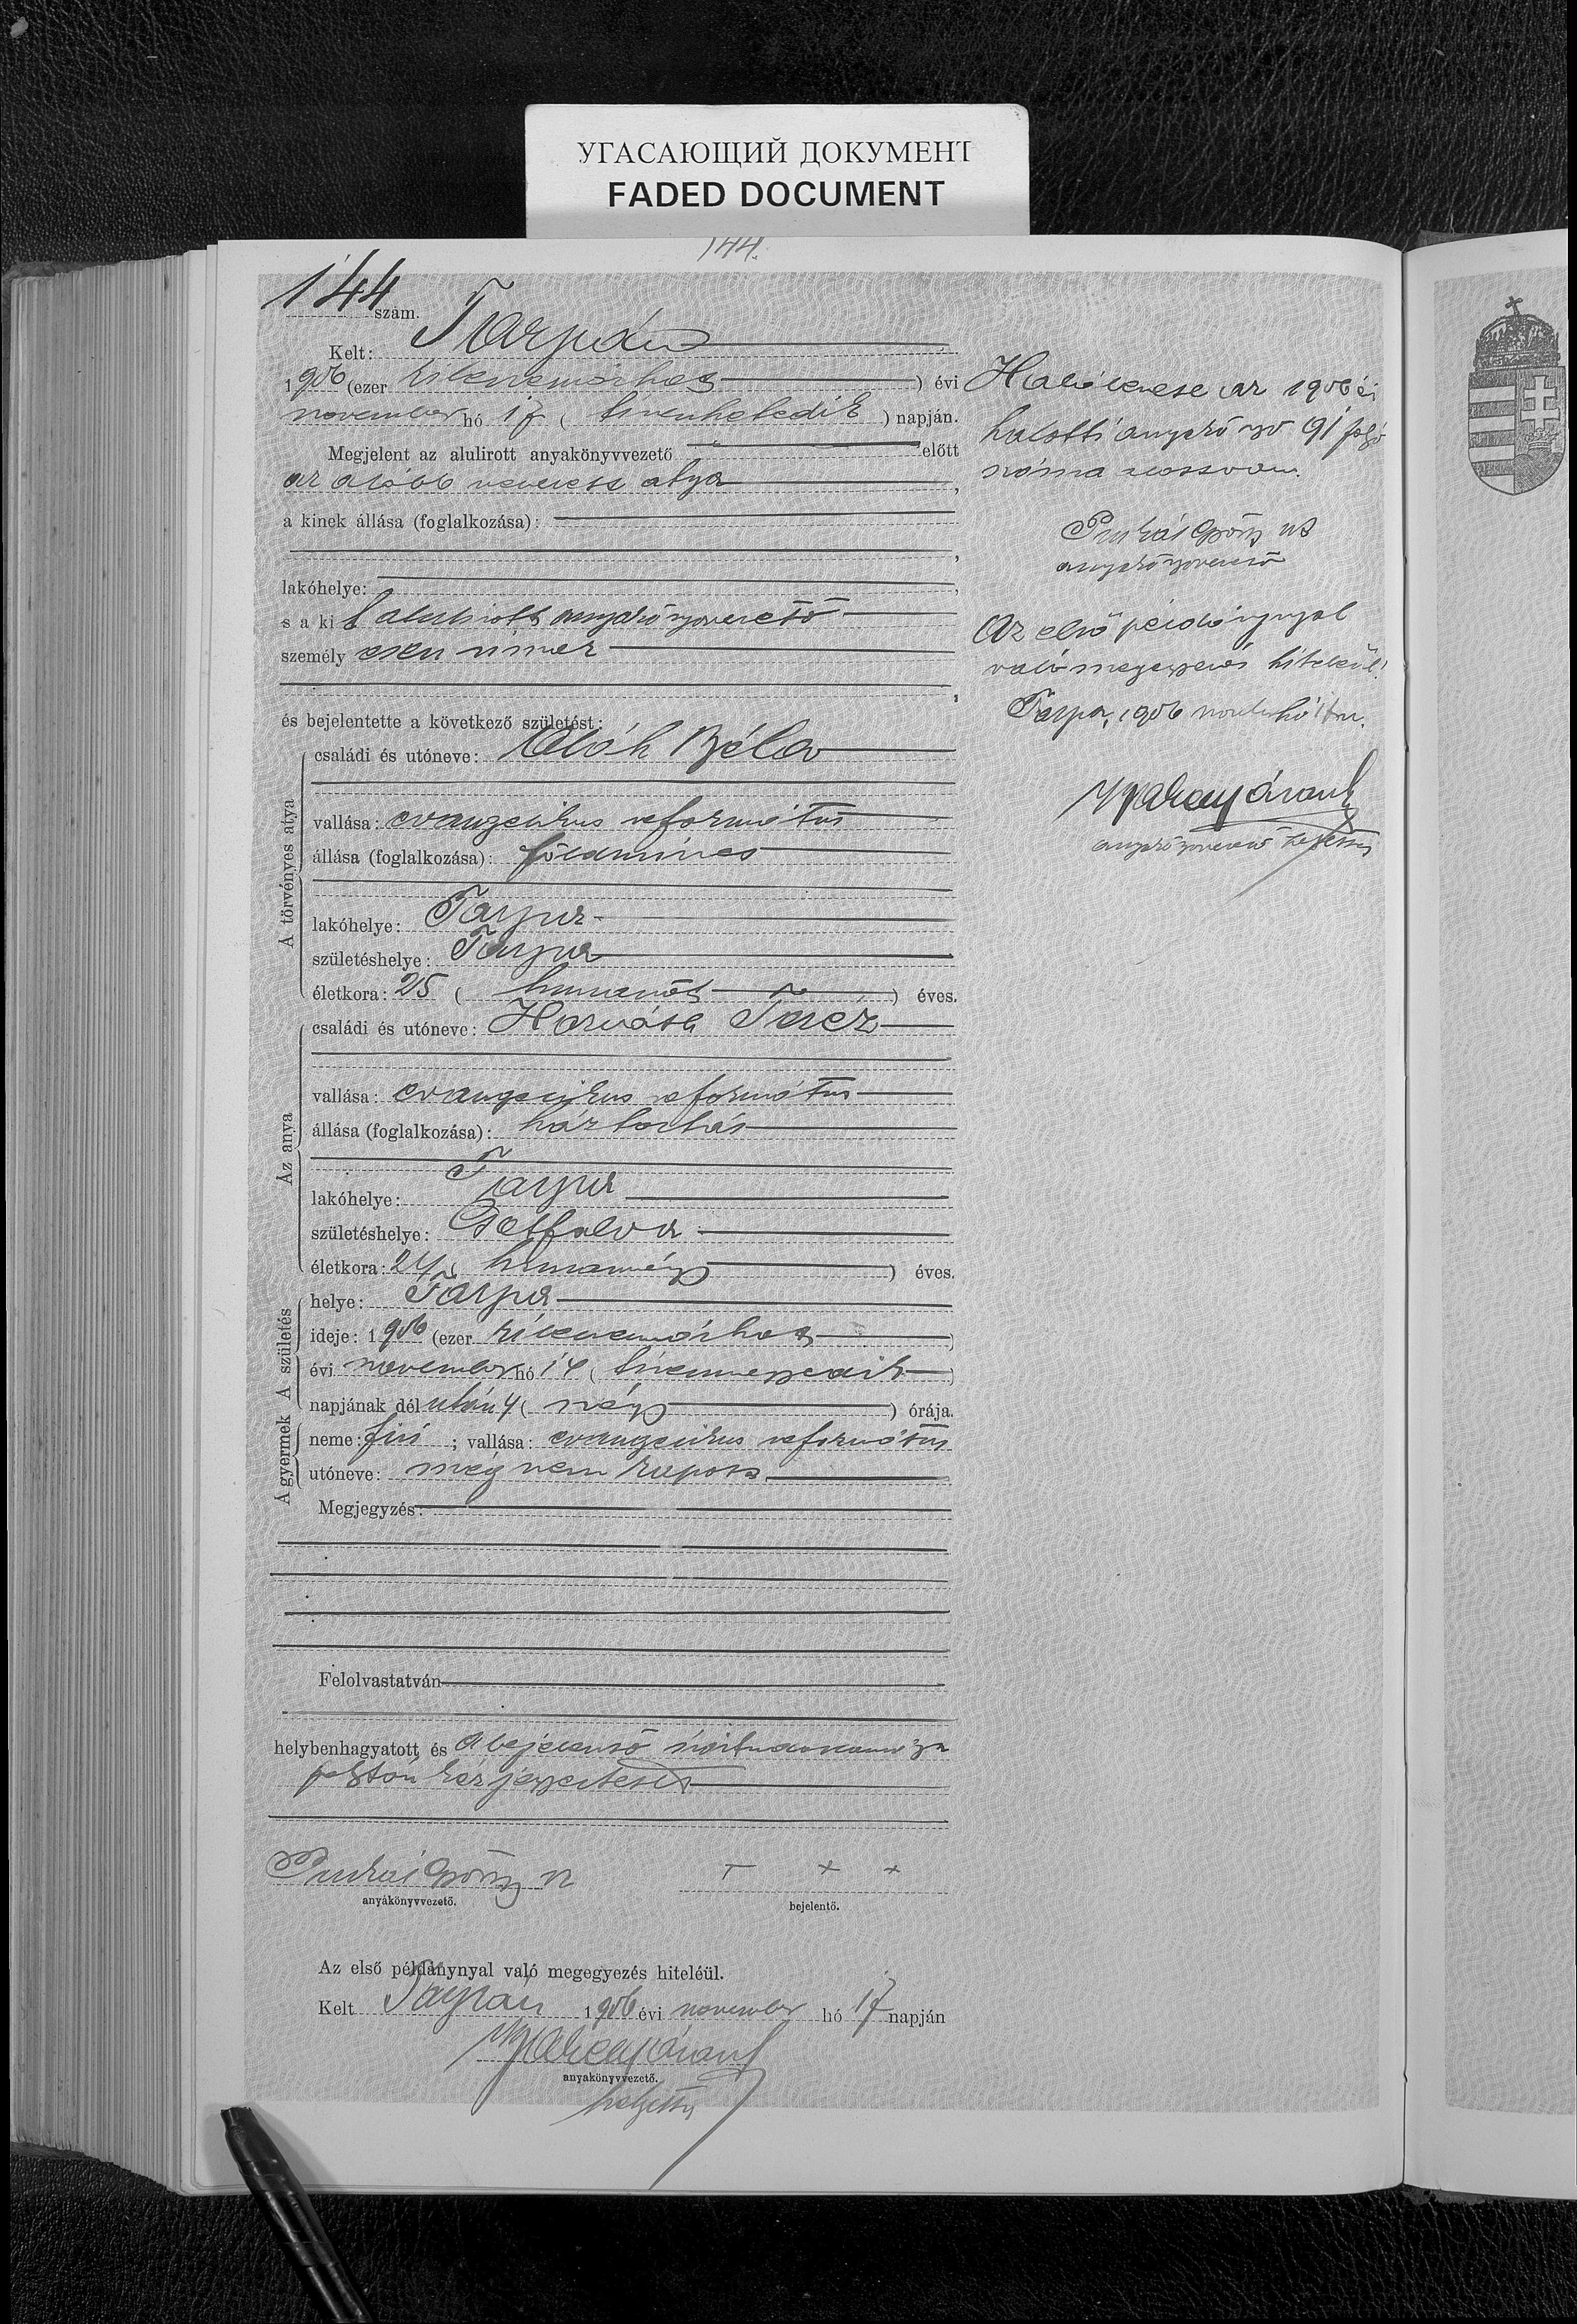 УГАСАЮЩИЙ ДОКУМЕНТ
FADED DOCUMENT
144.
144 szám.
Kelt: Tarpán
1906 (ezer kilencszázhat ) évi
november hó 17 ( tizenhetedik ) napján.
Megjelent az alulirott anyakönyvvezető előtt
az alább nevezett atya ,
a kinek állása (foglalkozása):
,
lakóhelye: ,
s a kit alulirott anyakönyvvezető
személy esen ismer
,
és bejelentette a következő születést:
A törvényes atya
családi és utóneve: Oláh Béla
vallása: evangelikus református
állása (foglalkozása): földmíves
lakóhelye: Tarpa
születéshelye: Tarpa
életkora: 25 ( huszonöt ) éves.
Az anya
családi és utóneve: Horváth Teréz
vallása: evangelikus református
állása (foglalkozása): háztartás
lakóhelye: Tarpa
születéshelye:
életkora: 24 ( huszonnégy ) éves.
A születés
helye: Tarpa
ideje: 1906 (ezer kilencszázhat )
évi november hó 14 ( tizennegyedik )
napjának dél után 4 ( négy ) órája.
A gyermek
neme: fiú ; vallása: evangelikus református
utóneve: még nem kapott
Megjegyzés:
Felolvastatván
helybenhagyatott és a bejelentő írástudatlansága
folytán kézjegyeztetett
anyakönyvvezető.
+ + +
bejelentő.
Az első példánynyal való megegyezés hiteléül.
Kelt Tarpán 1906 évi november hó 17 napján
anyakönyvvezető.
helyettes
az 1906 évi
halotti anyakönyv 91 folyó
szám alatt van.
anyakönyvvezető
Az első példánynyal
való megegyezés hiteléül!
Tarpa, 1906 november hó 17én.
anyakönyvvezető helyettes